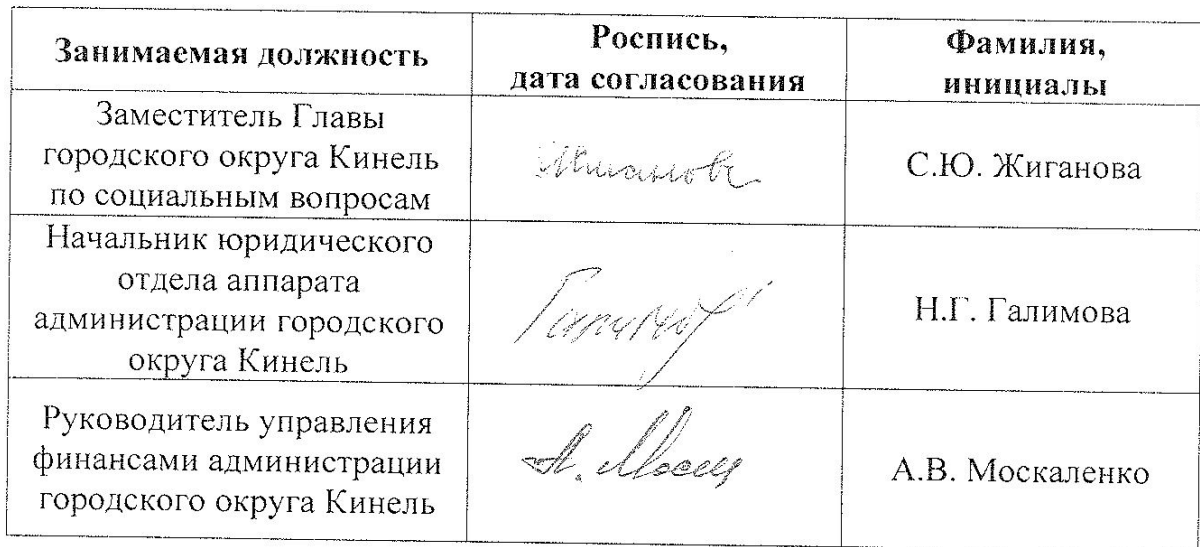 Занимаемая должность
Роспись,
дата согласования
Фамилия,
инициалы
Заместитель Главы
городского округа Кинель
по социальным вопросам
С.Ю. Жиганова
Начальник юридического
отдела аппарата
администрации городского
округа Кинель
Н.Г. Галимова
Руководитель управления
финансами администрации
городского округа Кинель
А.В. Москаленко